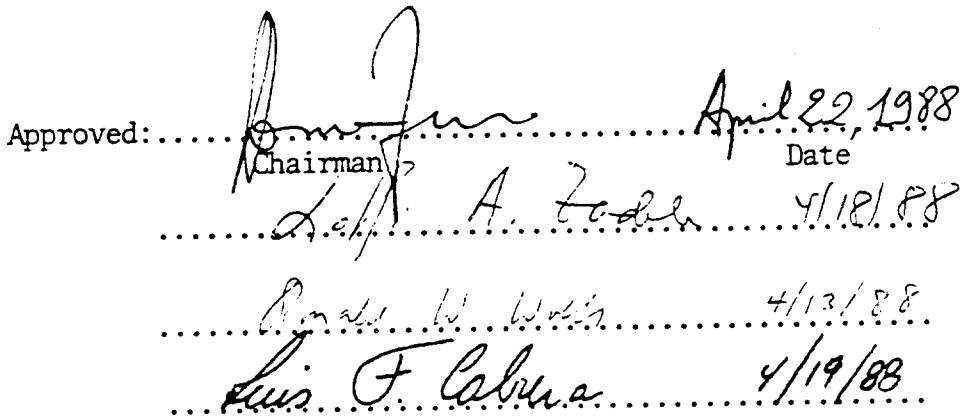 Approved: April 22, 1988
Chairman Date
A. Zadeh 4/18/88
Ronald W. Wolff 4/13/88
Luis F. Cabrera 4/19/88